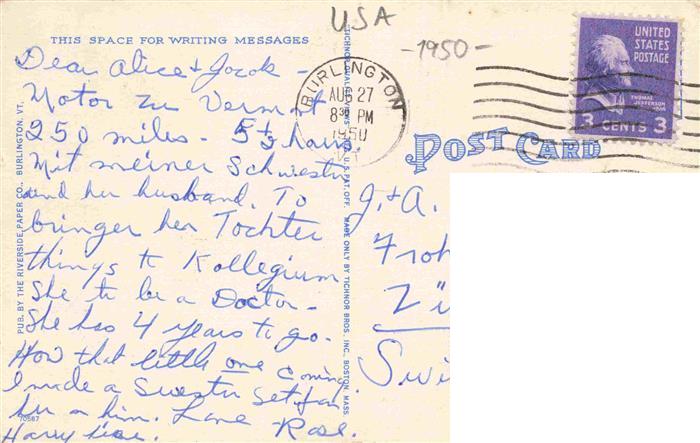 USA
-1950-
THIS SPACE FOR WRITING MESSAGES
BURLINGTON
AUG 27
8 30 PM
1950
VT.
UNITED
STATES
POSTAGE
THOMAS
JEFFERSON
3 CENTS 3
POST CARD
Dear Alice & Jacob -
Motor zu Vermont
250 miles - 5½ hours.
Mit meiner Schwester
and her husband. To
bringer her Tochter
things to Kollegium
She to be a Doctor -
She has 4 years to go.
How that little one coming
I made a Swester set for
her or him. Love Rose.
Harry
J. & A.
Froh
Zü
Swi
PUB. BY THE RIVERSIDE PAPER CO., BURLINGTON, VT.
70567
U.S. PAT. OFF. MADE ONLY BY TICHNOR BROS., INC., BOSTON, MASS.